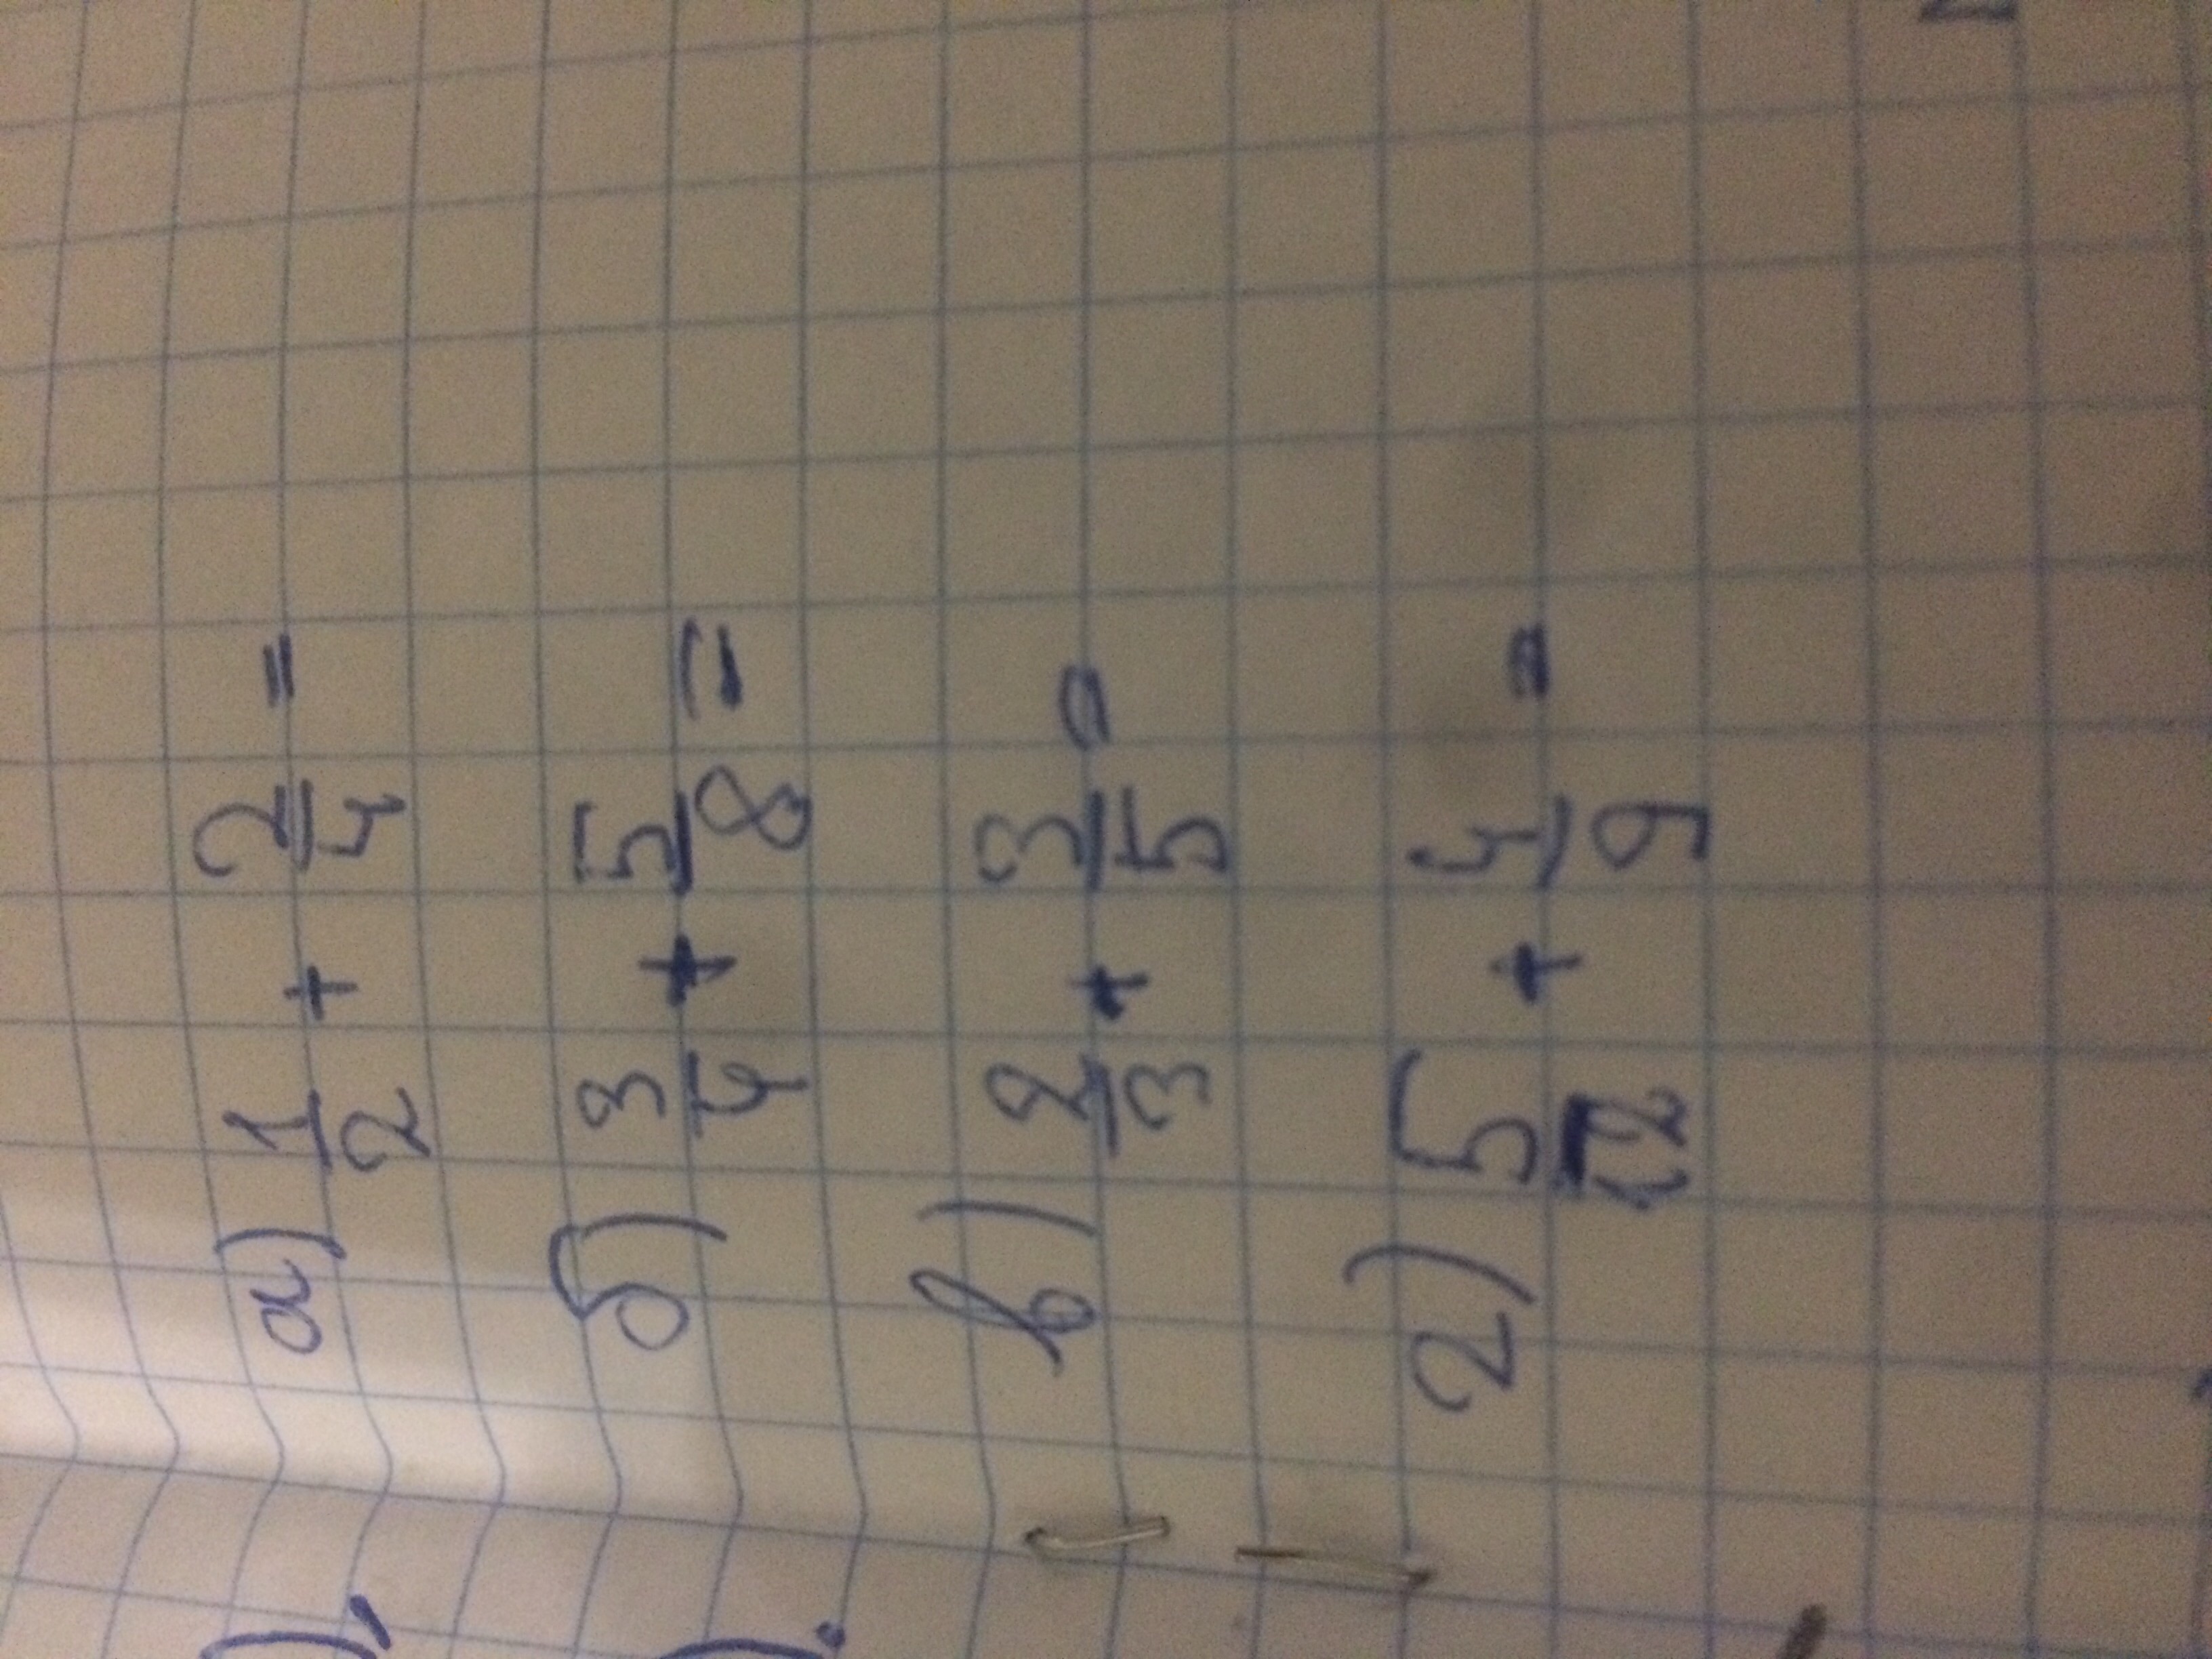 а) 1/2 + 2/4 =
б) 3/4 + 5/8 =
в) 2/3 + 3/5 =
г) 5/12 + 4/9 =